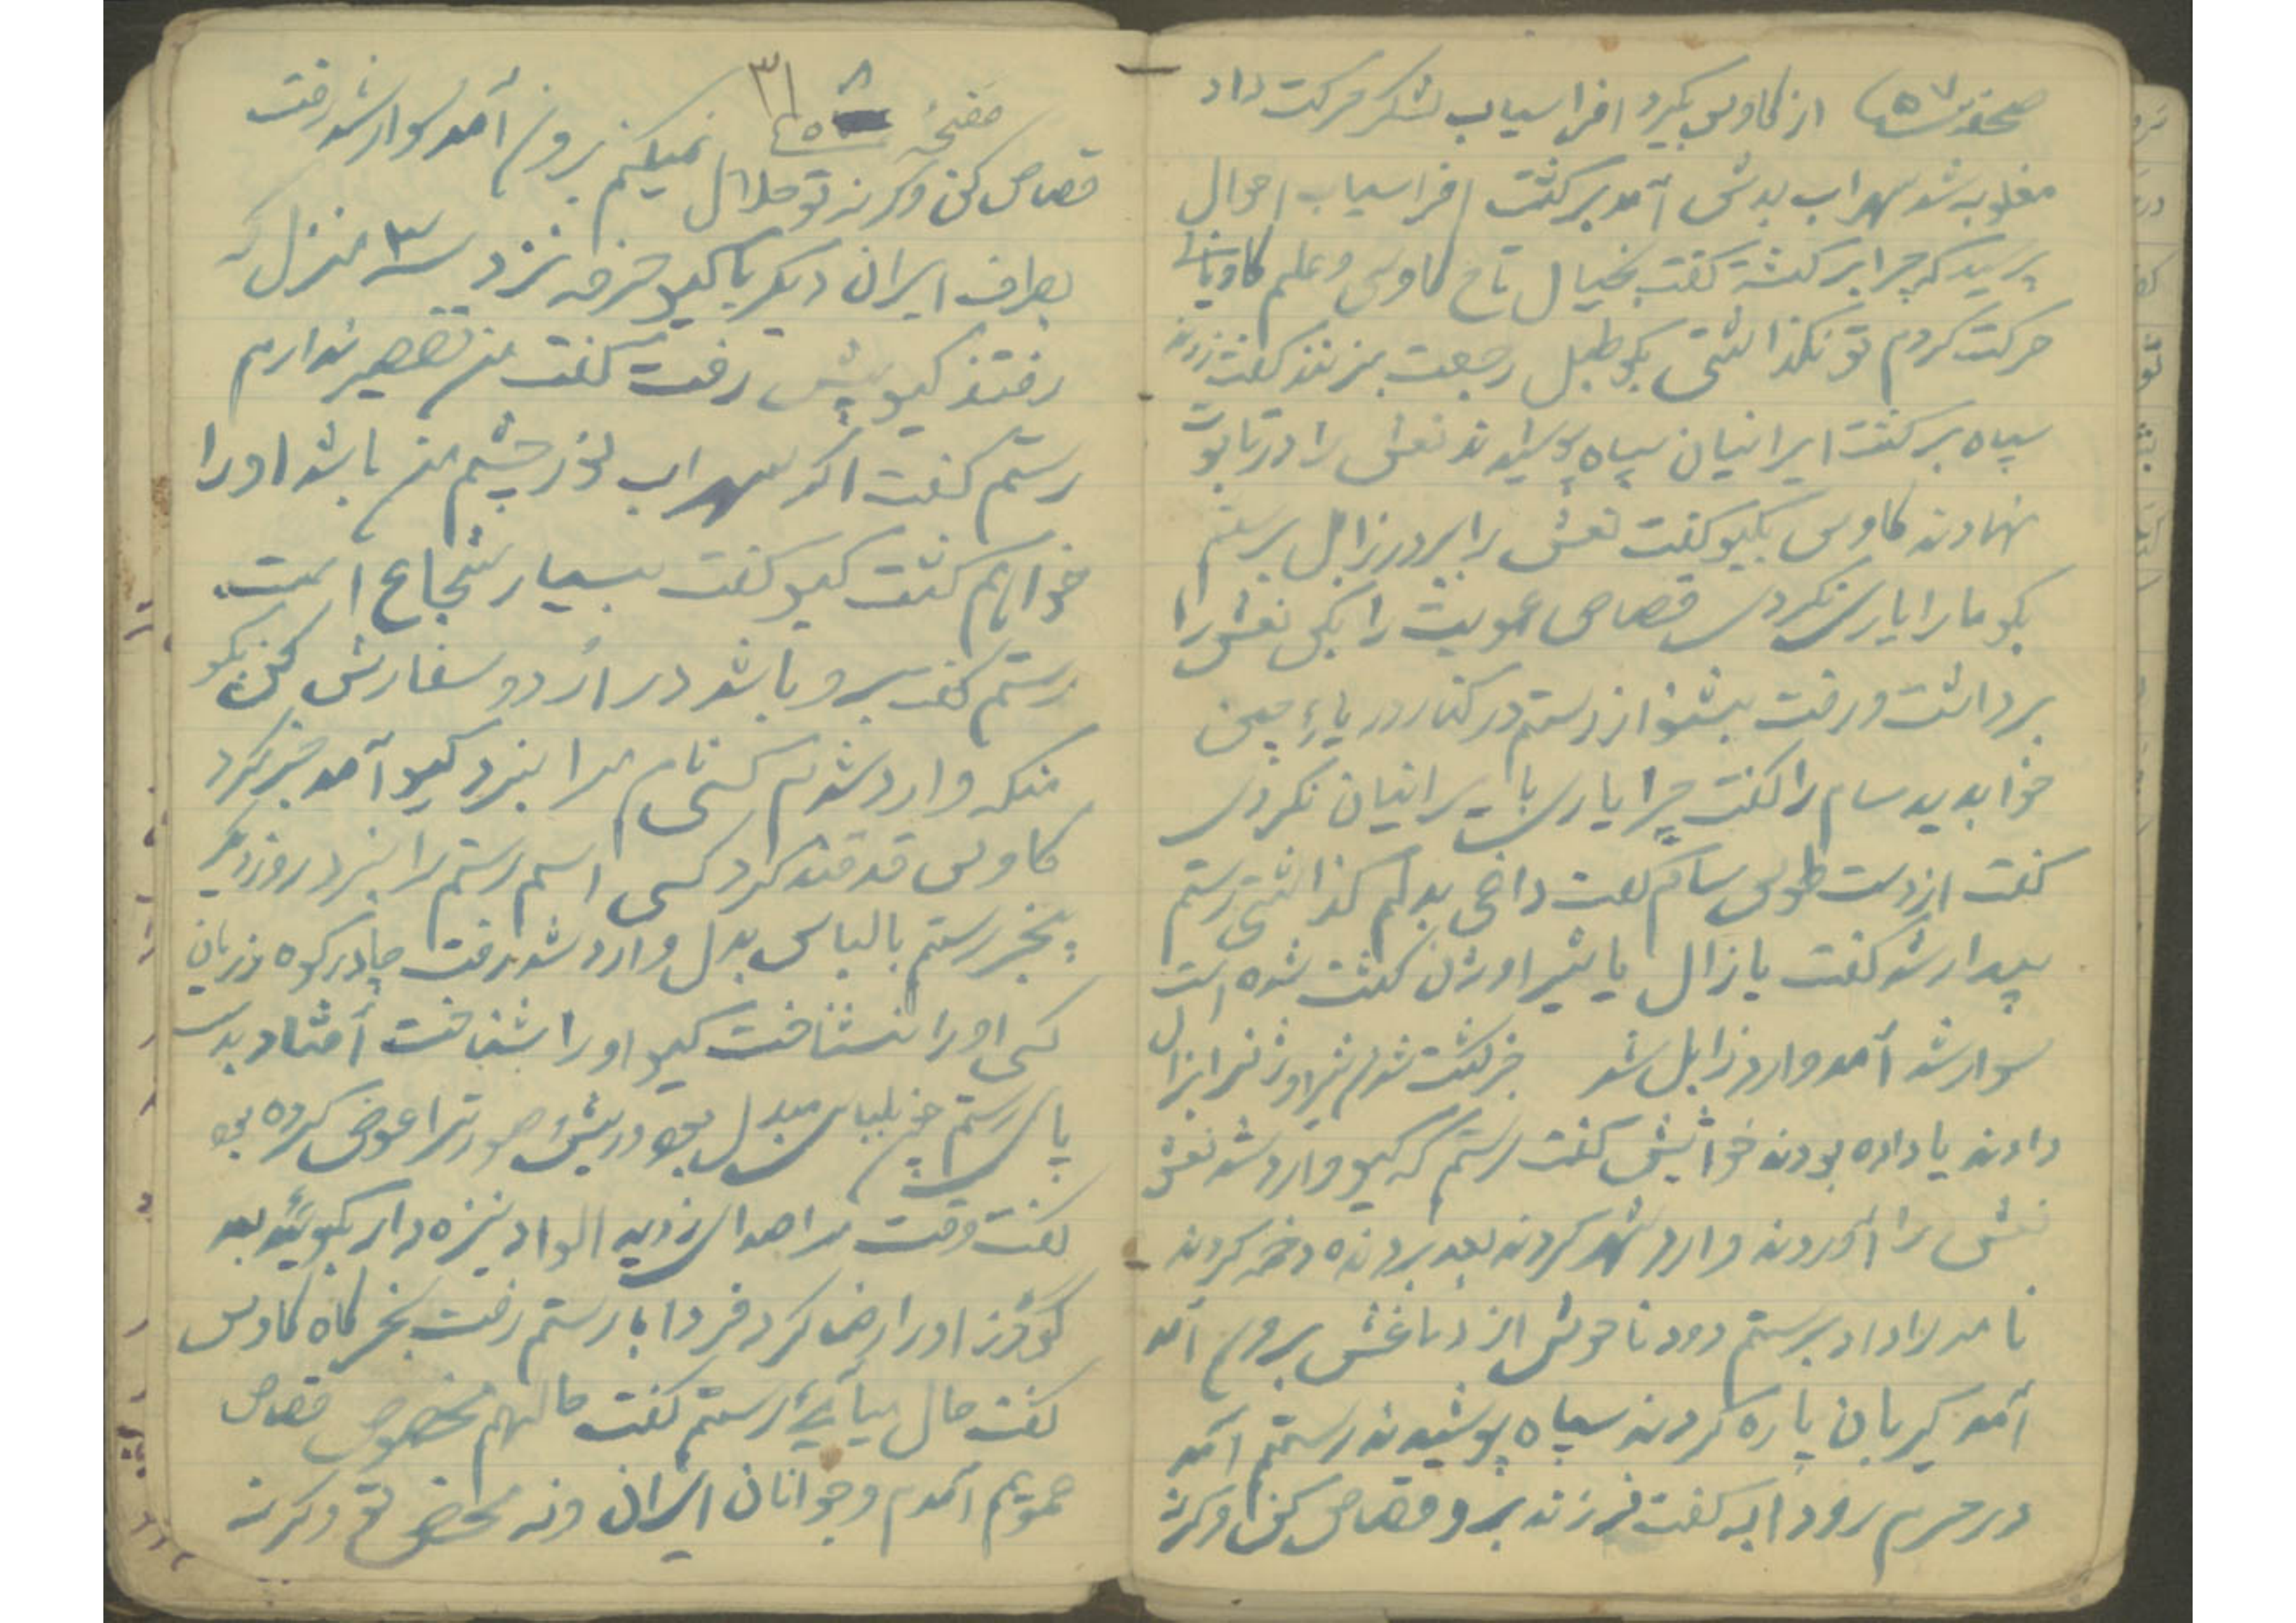 صحفه ۵۷ از کاوس بگیرد افراسیاب لشکر حرکت داد
مغلوبه شد سهراب بدش آمد برگشت افراسیاب احوال
پرسید که چرا برگشته گفت بخیال تاج کاوس و علم کاویانی
حرکت کردم تو نگذاشتی بگو طبل رجعت بزنند گفت زدند
سپاه برگشت ایرانیان سیاه پوشیدند نعش را در تابوت
نهادند کاوس بگیو گفت نعش را ببر در زابل برستم
بگو ما را یاری نکردی قصاص عمویت را بکن نعش را
برداشت و رفت بشنو از رستم در کنار دریاء چین
خوابدید سام را گفت چرا یاری با ایرانیان نکردی
گفت از دست طوس سام گفت داغی بدلم گذاشتی رستم
بیدار شد گفت یا زال یا شیر اوژن کشته شده است
سوار شد آمد وارد زابل شد خبر کشته شدن شیر اوژنرا بزال
دادند یا داده بودند گفت رستم که گیو وارد شد نعش
نعش را آوردند وارد شهر کردند بعد بردند دخمه کردند
نامه را داد برستم دود ناخوش از دماغش برون آمد
آمد گیربان پاره کردند سیاه پوشیدند رستم آمد
در حرم رودابه گفت فرزند برو قصاص کن وگرنه
صفحهٔ ۵۸ ۳۱
قصاص کن وگرنه تو حلال نمیکنم برون آمد سوار شد رفت
بطرف ایران دیگر با گیو حرف نزد سه ۳ منزل که
رفتند گیو پیش رفت گفت من تقصیر ندارم
رستم گفت اگر سهراب نور چشم من باشد او را
خواهم کشت گیو گفت بسیار شجاع است
رستم گفت برو باشد در اردو سفارش کن بگو
منکه وارد شدم کسی نام مرا نبرد گیو آمد خبر کرد
کاوس قدقند کرد کسی اسم رستم را نبرد روز دیگر
بیخبر رستم با لباس بدل وارد شد رفت چادر گوه رزبان
کسی او را نشناخت گیو او را شناخت افتاد بدست
پای رستم چون بلباس مبدل بود و ریش صورتش را عوض کرده بود
گفت وقت مرا صدا زدید الواد نیزه دار بگوئید بعد
گودرز او را راضی کرد فردا با رستم رفت بخرگاه کاوس
گفت حال میآیی رستم گفت حالهم مخصوص قصاص
عمویم آمدم و جوانان ایران و نه محض تو وگرنه